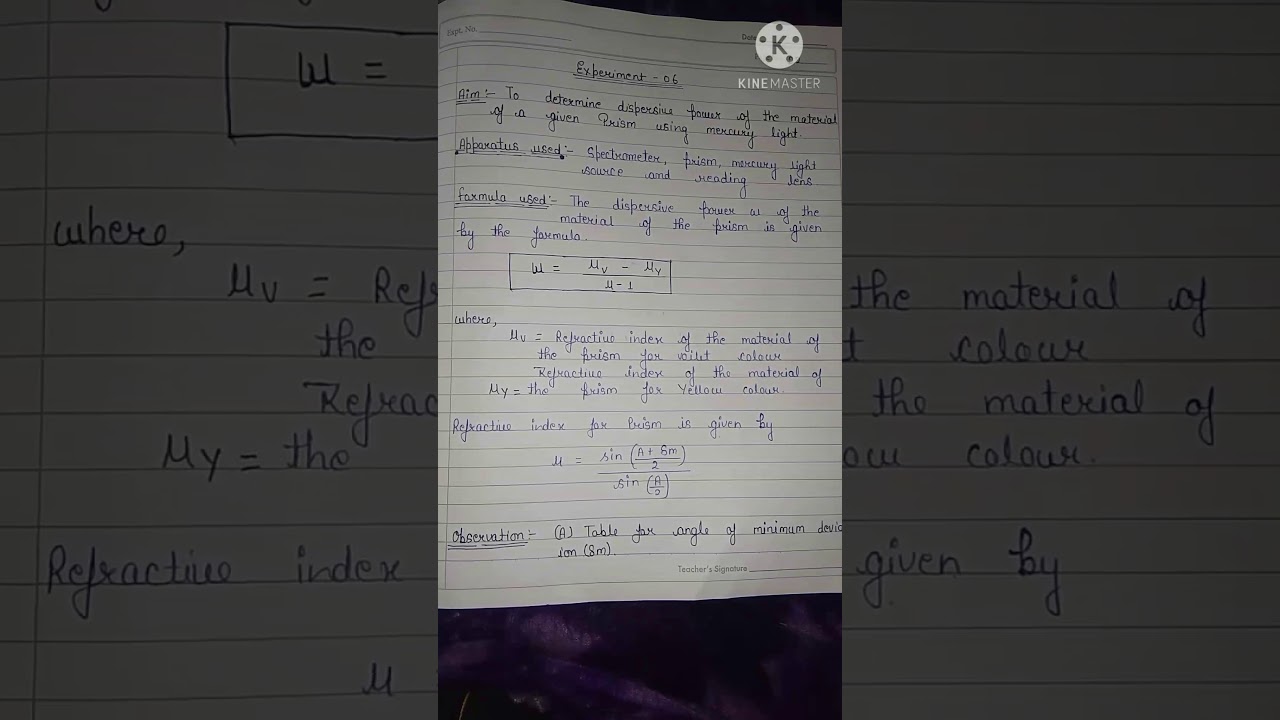 Expt. No.
Date
KINEMASTER
Experiment - 06
Aim :- To determine dispersive power of the material
of a given Prism using mercury light.
Apparatus used :- Spectrometer, prism, mercury light
source and reading lens
farmula used :- The dispersive power ω of the
material of the prism is given
by the formula.
ω = (μv - μy) / (μ - 1)
where,
μv = Refractive index of the material of
the prism for voilet colour
Refractive index of the material of
μy = the prism for Yellow colour.
Refractive index for Prism is given by
μ = sin ((A + δm)/2) / sin (A/2)
Observation :- (A) Table for angle of minimum deviat
ion (δm).
Teacher's Signature
ω =
where,
μv = Refr
the material of
the
colour
Refrac
the material of
μy = the
colour.
Refractive index
given by
μ